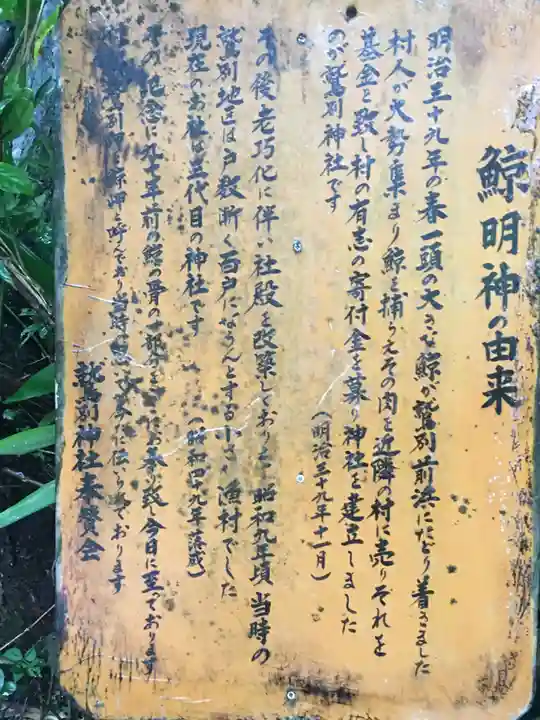 鯨明神の由来
明治三十九年の春一頭の大きな鯨が鷲別前浜にたどり着きました
村人が大勢集まり鯨を捕らえその肉を近隣の村に売りそれを
基金と致し村の有志の寄付金を募り神社を建立しました
のが鷲別神社です
(明治三十九年十一月)
その後老巧化に伴い社殿を改築しており 昭和九年頃当時の
鷲別地区は戸数漸く百戸になんとする小さい漁村でした
現在のお社は三代目の神社です
(昭和四十九年落成)
その 念に九十年前の鯨の骨の一部を 今日に至っております
鷲別岬を鯨岬と呼んでおり当時の に伝 ております
鷲別神社奉賛会